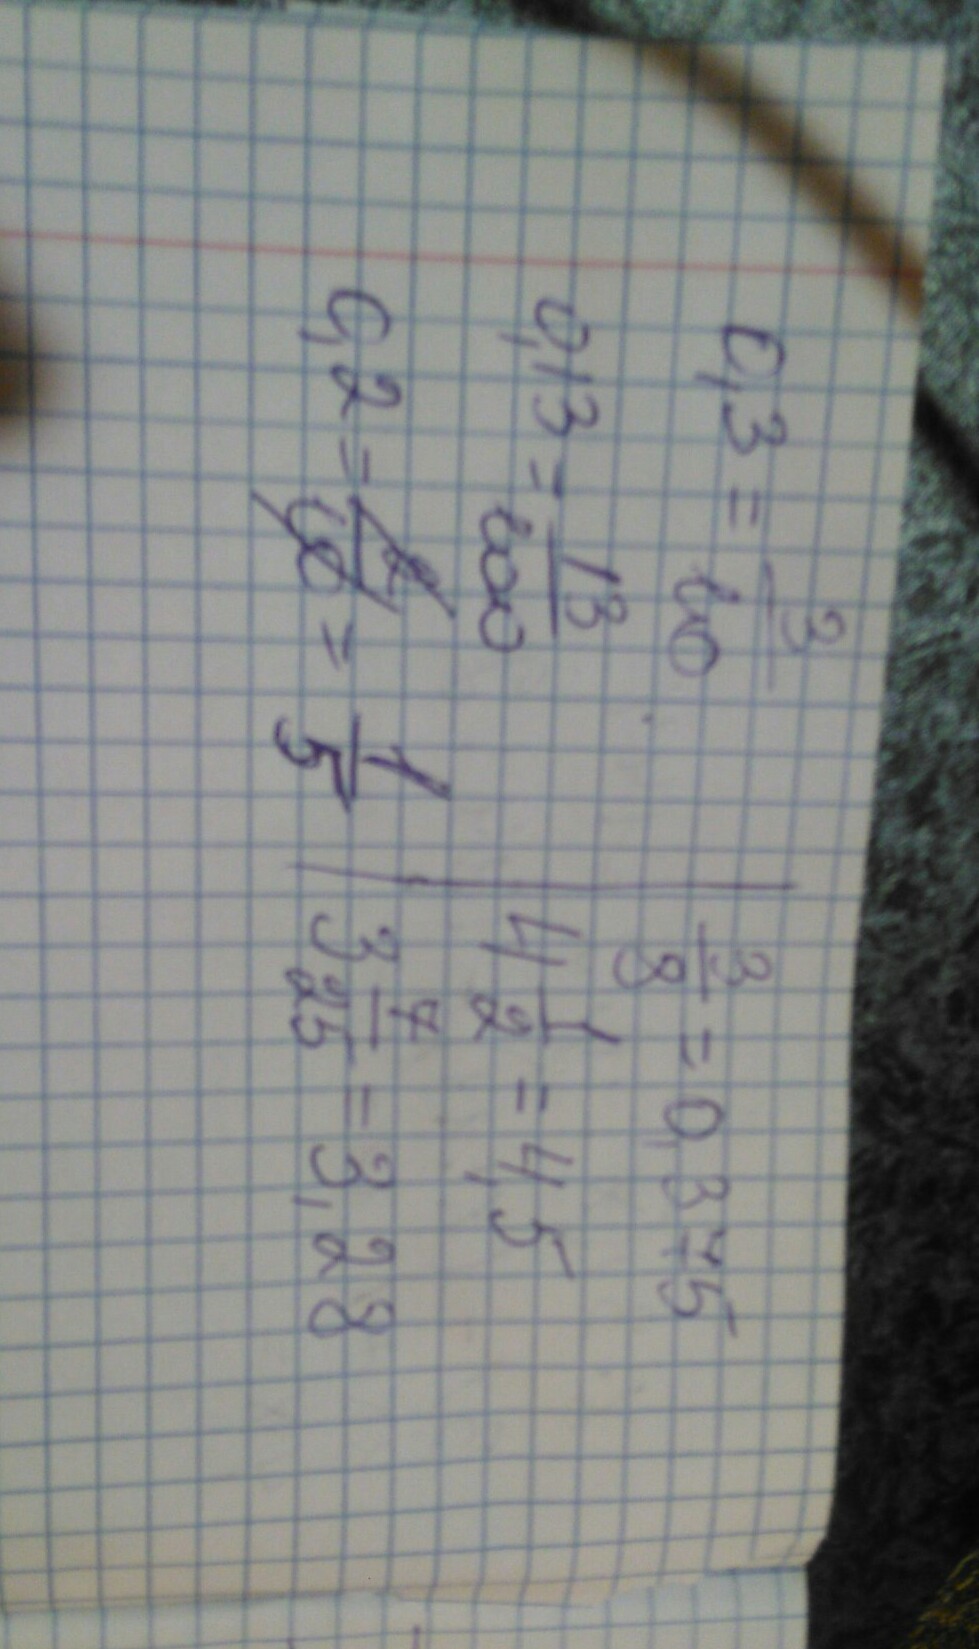 0,3 = 3/10
0,13 = 13/100
0,2 = 2/10 = 1/5
3/8 = 0,375
4 1/2 = 4,5
3 7/25 = 3,28